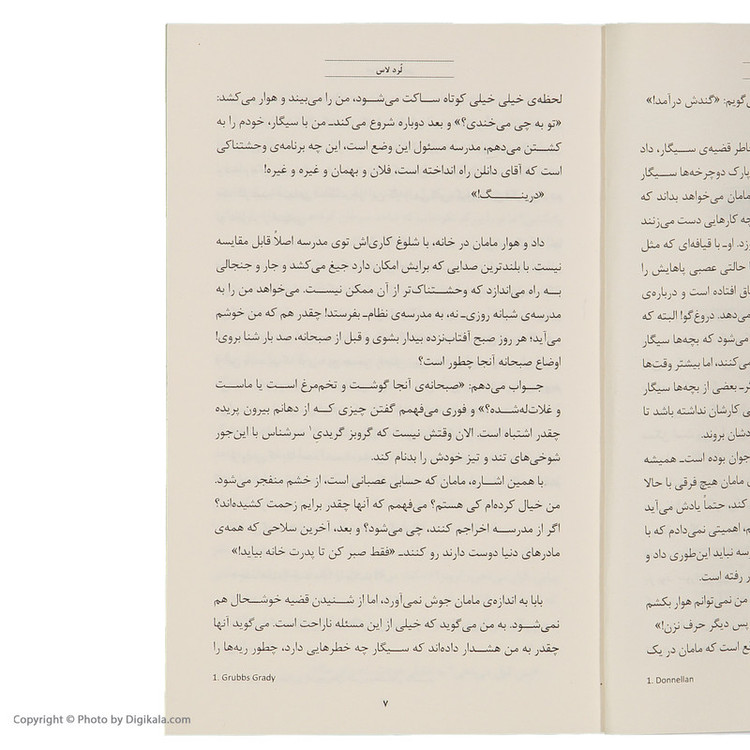 لُرد لاس
لحظه‌ی خیلی خیلی کوتاه ساکت می‌شود، من را می‌بیند و هوار می‌کشد:
«تو به چی می‌خندی؟» و بعد دوباره شروع می‌کندـ من با سیگار، خودم را به
کشتن می‌دهم، مدرسه مسئول این وضع است، این چه برنامه‌ی وحشتناکی
است که آقای دانلن راه انداخته است، فلان و بهمان و غیره و غیره!
«درینگ!»
داد و هوار مامان در خانه، با شلوغ کاری‌اش توی مدرسه اصلاً قابل مقایسه
نیست. با بلندترین صدایی که برایش امکان دارد جیغ می‌کشد و جار و جنجالی
به راه می‌اندازد که وحشتناک‌تر از آن ممکن نیست. می‌خواهد من را به
مدرسه‌ی شبانه روزی‌ـ نه، به مدرسه‌ی نظام‌ـ بفرستد! چقدر هم که من خوشم
می‌آید؛ هر روز صبح آفتاب‌نزده بیدار بشوی و قبل از صبحانه، صد بار شنا بروی!
اوضاع صبحانه آنجا چطور است؟
جواب می‌دهم: «صبحانه‌ی آنجا گوشت و تخم‌مرغ است یا ماست
و غلات‌له‌شده؟» و فوری می‌فهمم گفتن چیزی که از دهانم بیرون پریده
چقدر اشتباه است. الان وقتش نیست که گروبز گریدیِ۱ سرشناس با این‌جور
شوخی‌های تند و تیز خودش را بدنام کند.
با همین اشاره، مامان که حسابی عصبانی است، از خشم منفجر می‌شود.
من خیال کرده‌ام کی هستم؟ می‌فهمم که آنها چقدر برایم زحمت کشیده‌اند؟
اگر از مدرسه اخراجم کنند، چی می‌شود؟ و بعد، آخرین سلاحی که همه‌ی
مادرهای دنیا دوست دارند رو کنندـ «فقط صبر کن تا پدرت خانه بیاید!»
بابا به اندازه‌ی مامان جوش نمی‌آورد، اما از شنیدن قضیه خوشحال هم
نمی‌شود. به من می‌گوید که خیلی از این مسئله ناراحت است. می‌گوید آنها
چقدر به من هشدار داده‌اند که سیگار چه خطرهایی دارد، چطور ریه‌ها را
1. Grubbs Grady
۷
گویم: «گندش درآمد!»
قضیه‌ی سیگار، داد
پارک دوچرخه‌ها سیگار
مامان می‌خواهد بداند که
چه کارهایی دست می‌زنند
او‌ـ با قیافه‌ای که مثل
حالتی عصبی پاهایش را
افتاده است و درباره‌ی
می‌دهد. دروغ‌گو! البته که
می‌شود که بچه‌ها سیگار
می‌کنند، اما بیشتر وقت‌ها
بعضی از بچه‌ها سیگار
کارشان نداشته باشد تا
بروند.
جوان بوده است‌ـ همیشه
مامان هیچ فرقی با حالا
کند، حتماً یادش می‌آید
اهمیتی نمی‌دادم که با
نیاید این‌طوری داد و
رفته است.
من نمی‌توانم هوار بکشم
پس دیگر حرف نزن!»
است که مامان در یک
1. Donnellan
Copyright © Photo by Digikala.com